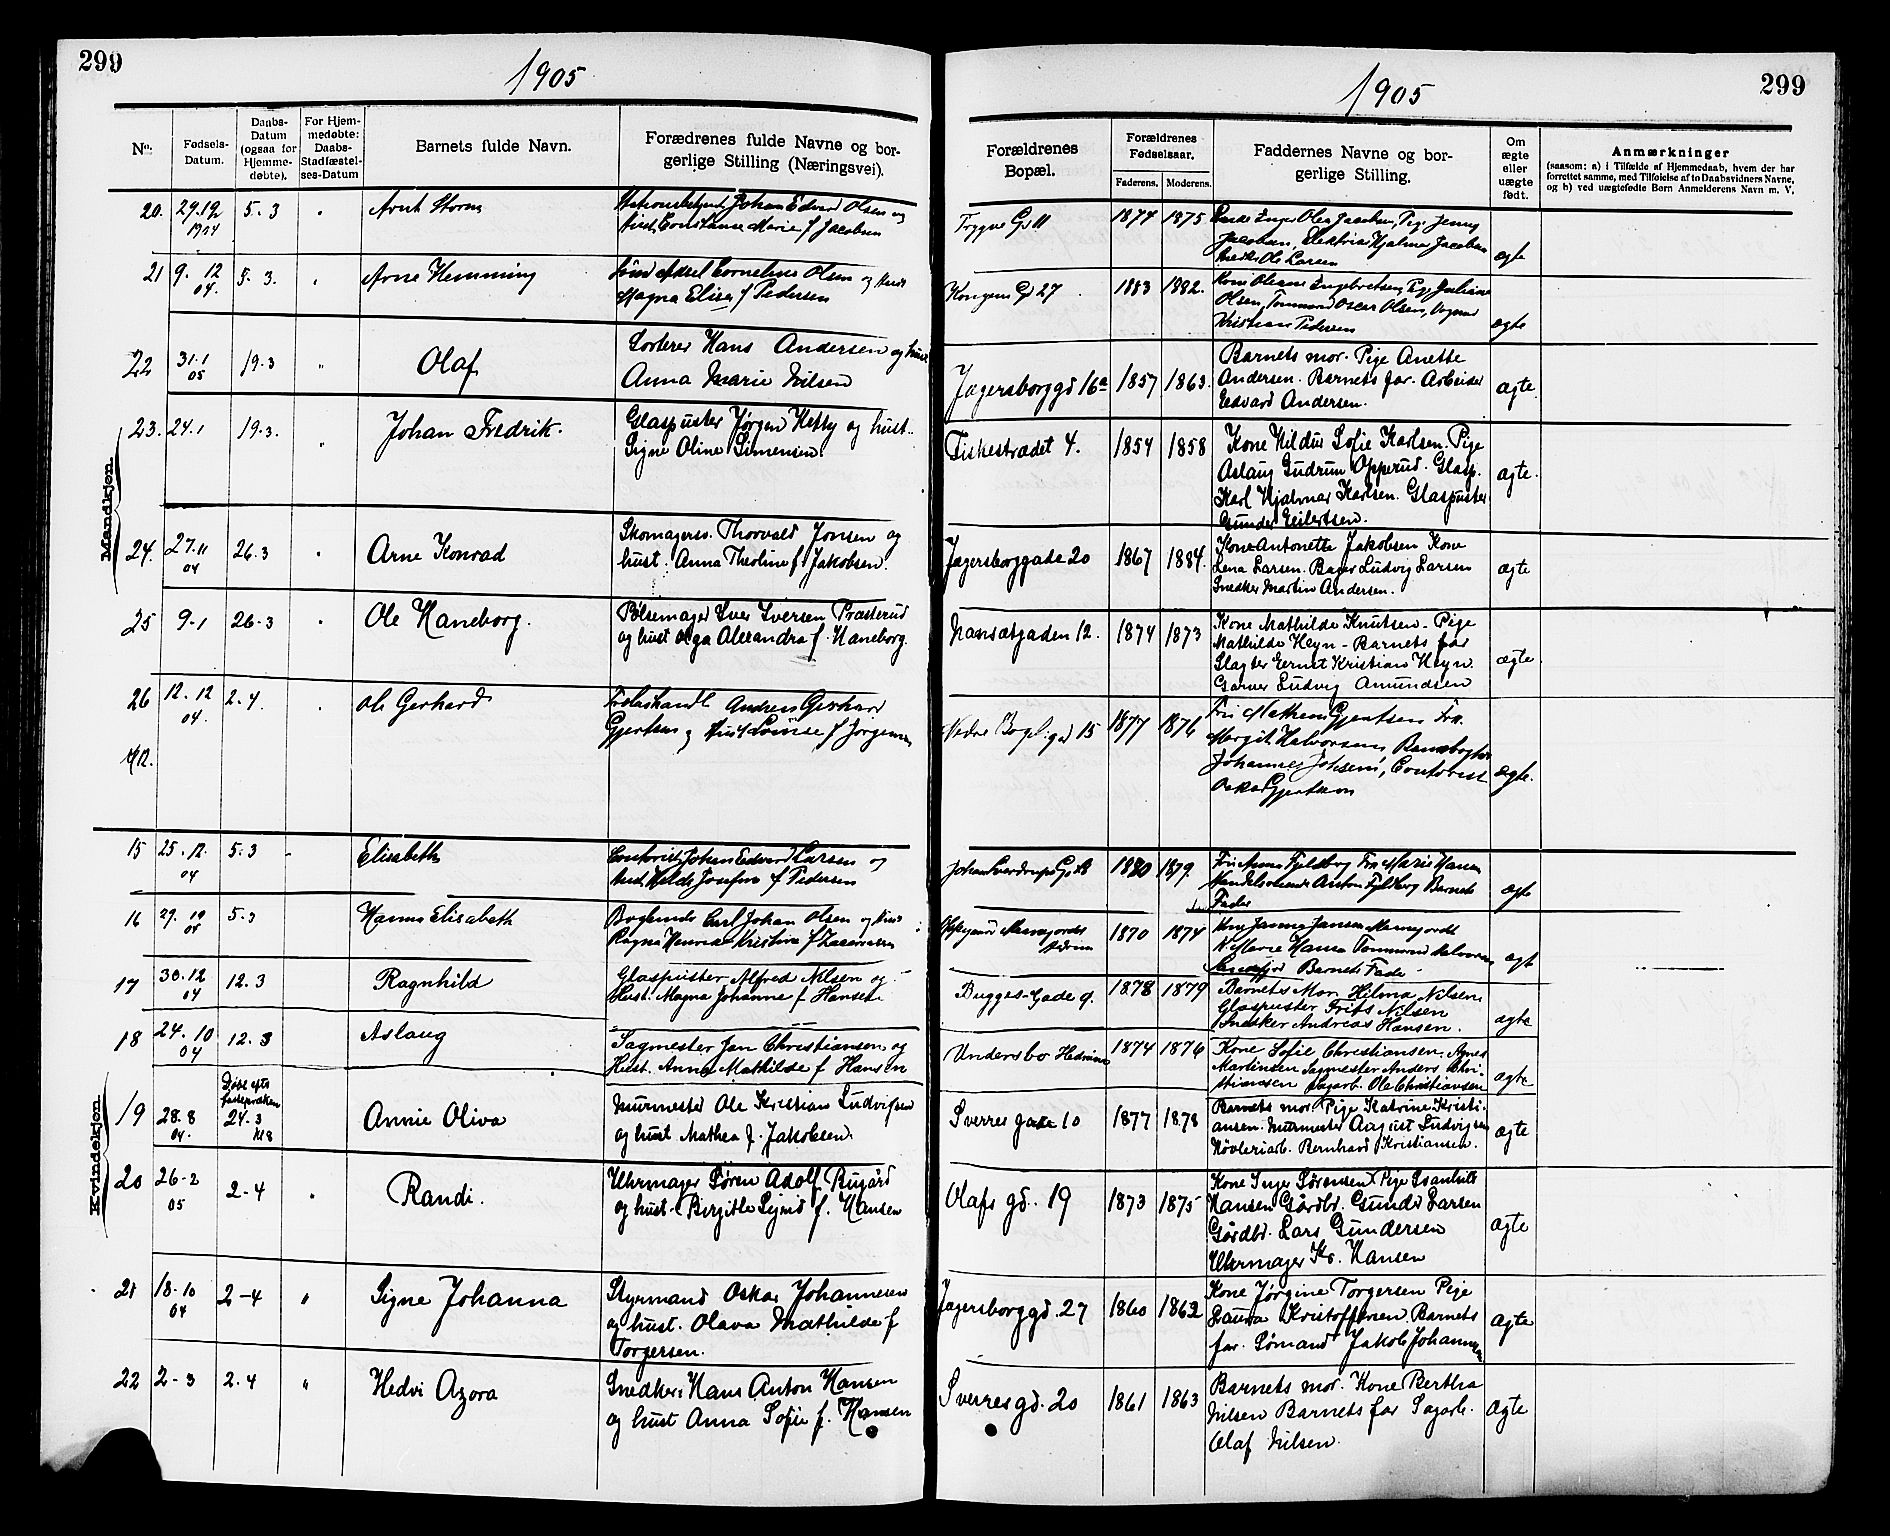 299
1905
No.
Fødsels-
Datum.
Daabs-
Datum
(ogsaa for
Hjemme-
døbte).
For Hjem-
medøbte:
Daabs-
Stadfæstel-
ses-Datum
Barnets fulde Navn.
Forældrenes fulde Navne og bor-
gerlige Stilling (Næringsvei).
Mandkjøn.
20. 29.12 1904 5.3 " Arnt Storm
Johan Edvard Olsen og
hust. Constance Marie f Jacobsen
21 9.12 04. 5.3. " Arne Hemming
Axel Cornelius Olsen og hust
Magna Elise f Pedersen
22 31.1 05 19.3 " Olaf
Sorterer Hans Andersen og hust
Anna Marie Nilsen
23. 24.1 19.3. " Johan Fredrik.
Glaspuster Jørgen Hetty og hust.
Signe Oline Simensen.
24. 27.11 04 26.3 " Arne Konrad
Skomagers. Thorvald Jonsen og
hust. Anna Theoline f Jakobsen.
25 9.1 26.3 " Ole Haneborg.
Pølsemager Iver Iversen Præsterud
og hust Olga Alexandra f. Haneborg.
26 12.12 04. 2.4. " Ole Gerhard
Andreas Gerhard
Gjertsen og Hust Louise f Jørgensen
Kvindekjøn.
15 25.12. 04 5.3 Elisabeth
Contorist Johan Edvard Larsen og
hust. Hilda Josefine f Pedersen
16 5.3 Hanna Elisabeth
Carl Johan Olsen og hust
Ragna Kristine f
17 30.12 04 12.3 Ragnhild
Glaspuster Alfred Nilsen og
Hust. Magna Johanne f Hansen
18 24.10 04 12.3 Aslaug
Sagmester Jan Christiansen og
Hust. Anna Mathilde f Hansen
19 28.8 04. 24.3 Annie Oliva
Murmester Ole Kristian Ludvigsen
og hust Mathea f. Jakobsen.
20 26-2 05 2-4 " Randi.
Uhrmager Søren Adolf Bugård
og hust. Birgitte Sigrid f. Hansen
21 18.10 04 2-4 " Signe Johanna
Styrmand Oskar Johannesen
og hust. Olava Mathilde f
Torgersen.
22 2-3 2.4 " Hedvi Azora
Snedker Hans Anton Hansen
og hust Anna Sofie f. Hansen
299
1905
Forældrenes
Bopæl.
Forældrenes
Fødselsaar.
Faderens. Moderens.
Faddernes Navne og bor-
gerlige Stilling.
Om
ægte
eller
uægte
født.
Anmærkninger
(saasom: a) i Tilfælde af Hjemmedaab, hvem der har
forrettet samme, med Tilføielse af to Daabsvidners Navne,
og b) ved uægtefødte Børn Anmelderens Navn m. V.
Trygve G. 11 1874 1875
Enke Inger Olea Jacobsen, Pig. Jenny
Jacobsen, Hjalmar Jacobsen
Ole Larsen
ægte
Kongens G 27 1883 1882.
Kone Oleane Engebretsen, Pige Juliane
Olsen, Tømmerm Oscar Olsen,
Kristian Pedersen
ægte
Jagersborggd 16a 1857 1863.
Barnets mor. Pige Anette
Andersen. Barnets far. Arbeider
Edvard Andersen.
ægte
Fiskestrædet 4. 1854 1858
Kone Hildur Sofie Karlsen. Pige
Aslaug Gudrun Opperud. Glasp.
Karl Hjalmar Karlsen. Glaspuster
Gunder Eilertsen.
ægte.
Jagersborggade 20 1867 1884.
Kone Antonette Jakobsen Kone
Lena Larsen. Bager Ludvig Larsen
Snedker Martin Andersen.
ægte
Nansetgaden 12. 1874 1873
Kone Mathilde Knutsen - Pige
Mathilde Heyn - Barnets far
Slagter Ernst Kristian Heyn
Garver Ludvig Amundsen
ægte.
15 1877 1876
Gjertsen Frk.
Margit Halvorsen,
Johannes Johsen, Contorist
Oskar Gjertsen
ægte.
Johan Sverdrups G. 1880 1879.
Fru Anna Fjeldberg Fru Marie Hansen
Anton Fjeldberg Barnets
Fader
ægte
1870 1874
Janna Jansen
K Marie Hansen Tømmerm Halvorsen
Barnets Fader
ægt
Bugges-Gade 9. 1878 1879
Barnets Mor, Hilma Nilsen,
Glaspuster Frits Nilsen
Snedker Andreas Hansen.
ægte
Undersbo Hedrum 1874 1876
Kone Sofie Christiansen, Agnes
Martinsen Sagmester Anders Chri-
stiansen Sagarb. Ole Christiansen
ægte
Sverres gade 10 1877 1878
Barnets mor. Pige Katrine Kristi-
ansen. Murmester August Ludvigsen
Høvleriarb. Bernhard Kristiansen.
ægte
Olafs gd. 19 1873 1875
Kone Inger Sørensen Pige
Hansen Gårdbr. Gunder Larsen
Gårdbr. Lars Gundersen
Uhrmager Kr. Hansen
ægte
Jagersborggd. 27 1860 1862
Kone Jørgine Torgersen Pige
Laura Kristoffersen Barnets
far. Sømand Jakob Johannesen
ægte
Sverres gd. 20 1861 1863
Barnets mor. Kone Bertha
Nilsen Barnets far Sagarb.
Olaf Nilsen.
ægte